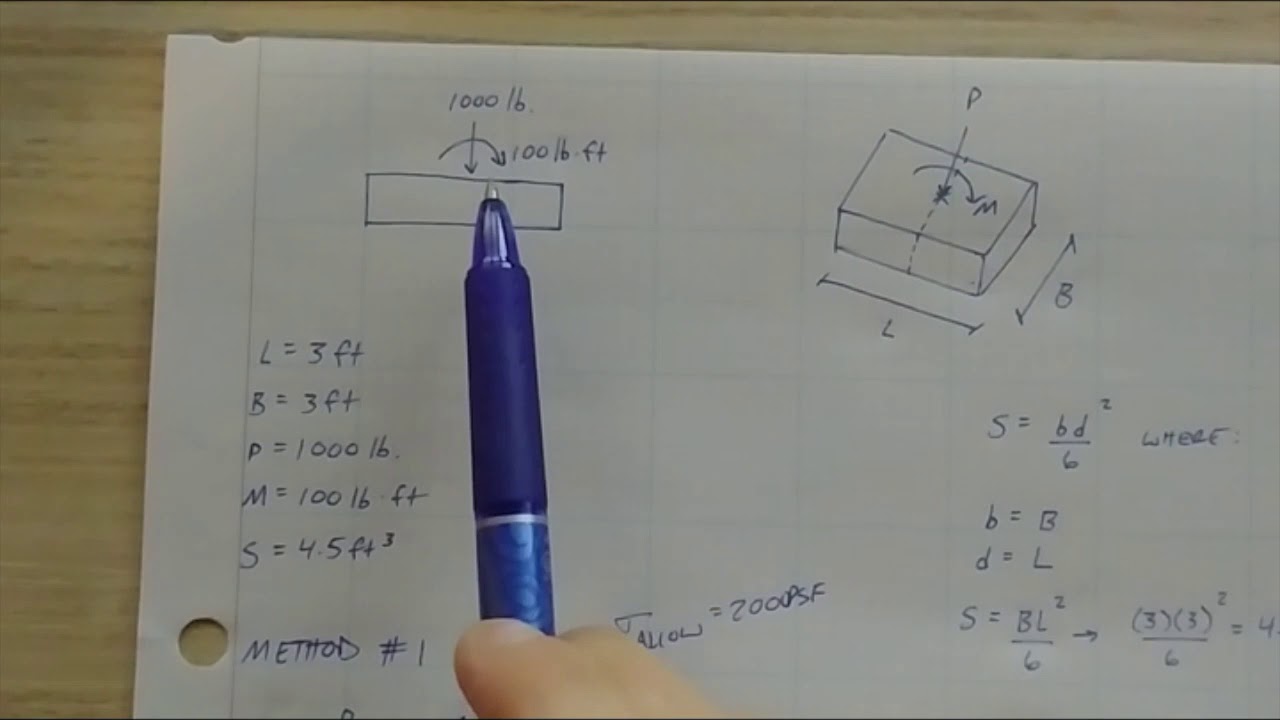 1000 lb.
100 lb·ft
P
M
B
L
L = 3 ft
B = 3 ft
P = 1000 lb.
M = 100 lb·ft
S = 4.5 ft³
S = bd²/6 WHERE:
b = B
d = L
S = BL²/6 → (3)(3)²/6 = 4.
METHOD #1
σALLOW = 2000PSF